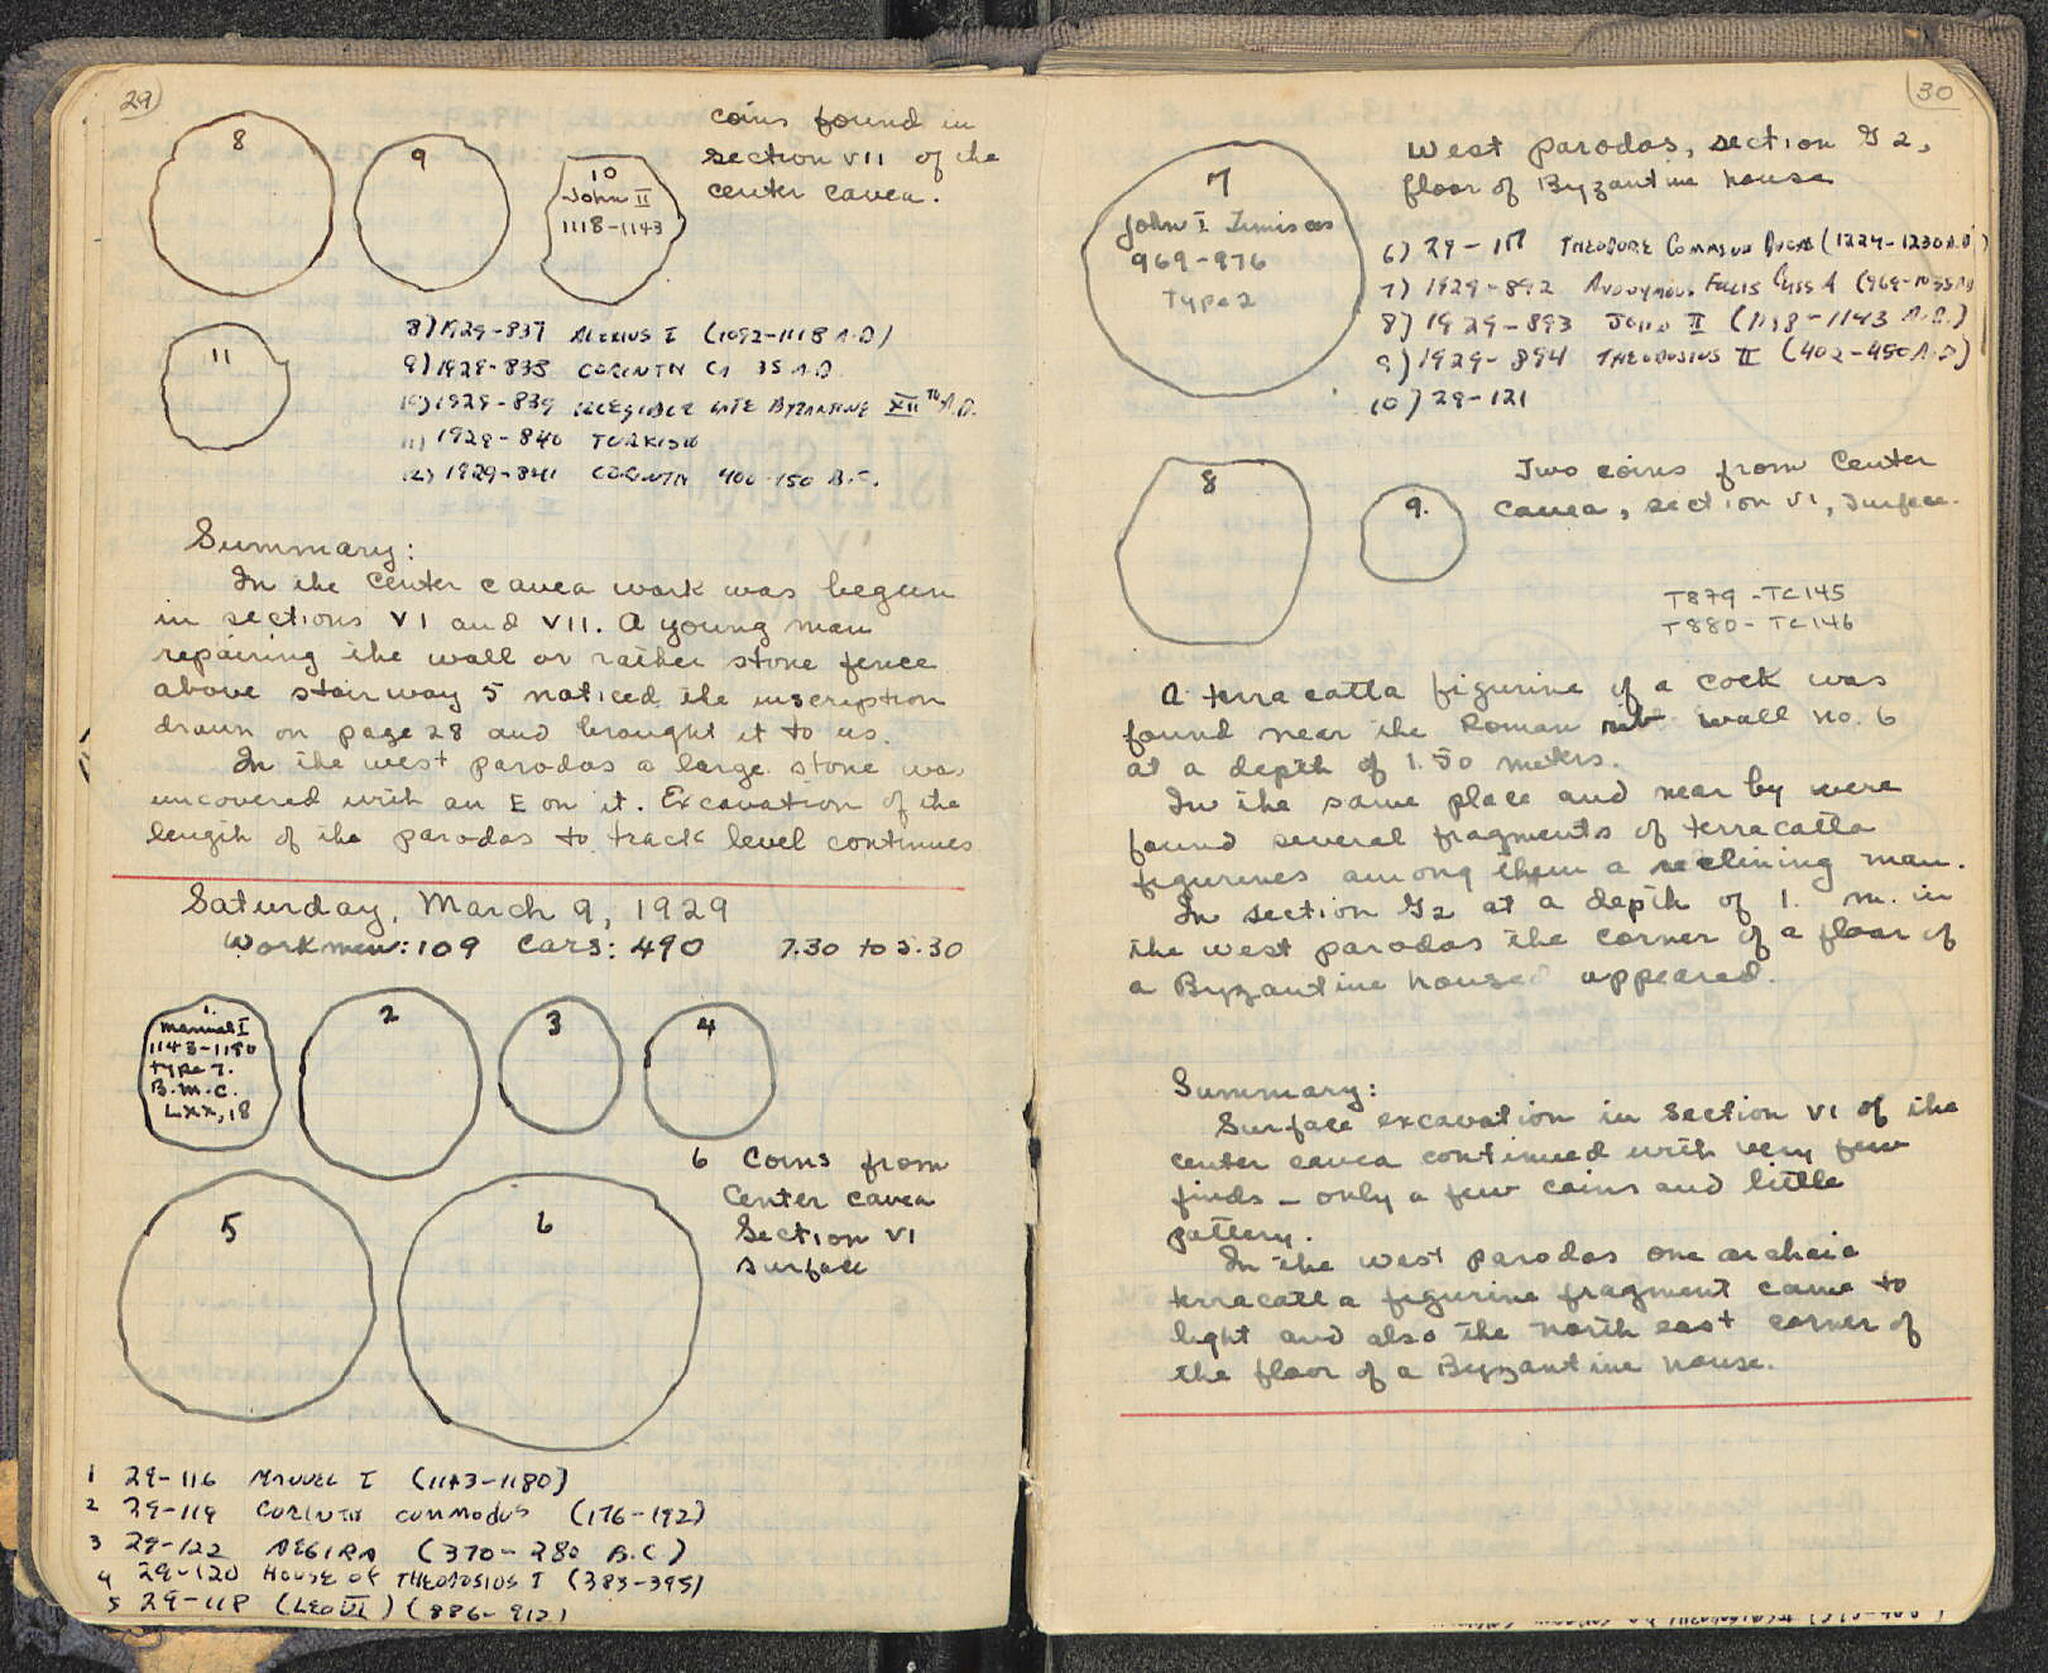 29
8
9
10
John II
1118-1143
coins found in
section VII of the
center cavea.
11
8) 1929-837 ALEXIUS I (1092-1118 A.D)
9) 1929-838 CORINTH CA 35 A.D
10) 1929-839 ILLEGIBLE LATE BYZANTINE XIITH A.D.
11) 1929-840 TURKISH
12) 1929-841 CORINTH 400-150 B.C.
Summary:
In the center cavea work was begun
in sections VI and VII. A young man
repairing the wall or rather stone fence
above stairway 5 noticed the inscription
drawn on page 28 and brought it to us.
In the west parodos a large stone was
uncovered with an E on it. Excavation of the
length of the parodos to track level continues
Saturday, March 9, 1929
Workmen: 109 Cars: 490 7.30 to 5.30
1.
Manuel I
1143-1180
type 7.
B.M.C.
LXX, 18
2
3
4
6 Coins from
Center cavea
Section VI
surface
5
6
1 29-116 MANUEL I (1143-1180)
2 29-119 CORINTH COMMODUS (176-192)
3 29-122 AEGIRA (370-280 B.C.)
4 29-120 HOUSE OF THEODOSIUS I (383-395)
5 29-118 (LEO VI) (886-912)
30
7
John I Zimisces
969-976
Type 2
West parodos, section G 2,
floor of Byzantine house
6) 29-117 THEODORE COMNENUS DUCAS (1224-1230 A.D.)
7) 1929-892 ANONYMOUS FOLLIS CLASS A (969-1035 AD)
8) 1929-893 JOHN II (1118-1143 A.D.)
9) 1929-894 THEODOSIUS II (402-450 A.D)
10) 29-121
8
9.
Two coins from Center
Cavea, section VI, surface.
T879 - TC145
T880 - TC146
A terra cotta figurine of a cock was
found near the Roman wall no. 6
at a depth of 1.50 meters.
In the same place and near by were
found several fragments of terracotta
figurines among them a reclining man.
In section G2 at a depth of 1. m. in
the west parodos the corner of a floor of
a Byzantine house appeared.
Summary:
Surface excavation in section VI of the
center cavea continued with very few
finds - only a few coins and little
pottery.
In the west parodos one archaic
terracotta figurine fragment came to
light and also the north east corner of
the floor of a Byzantine house.